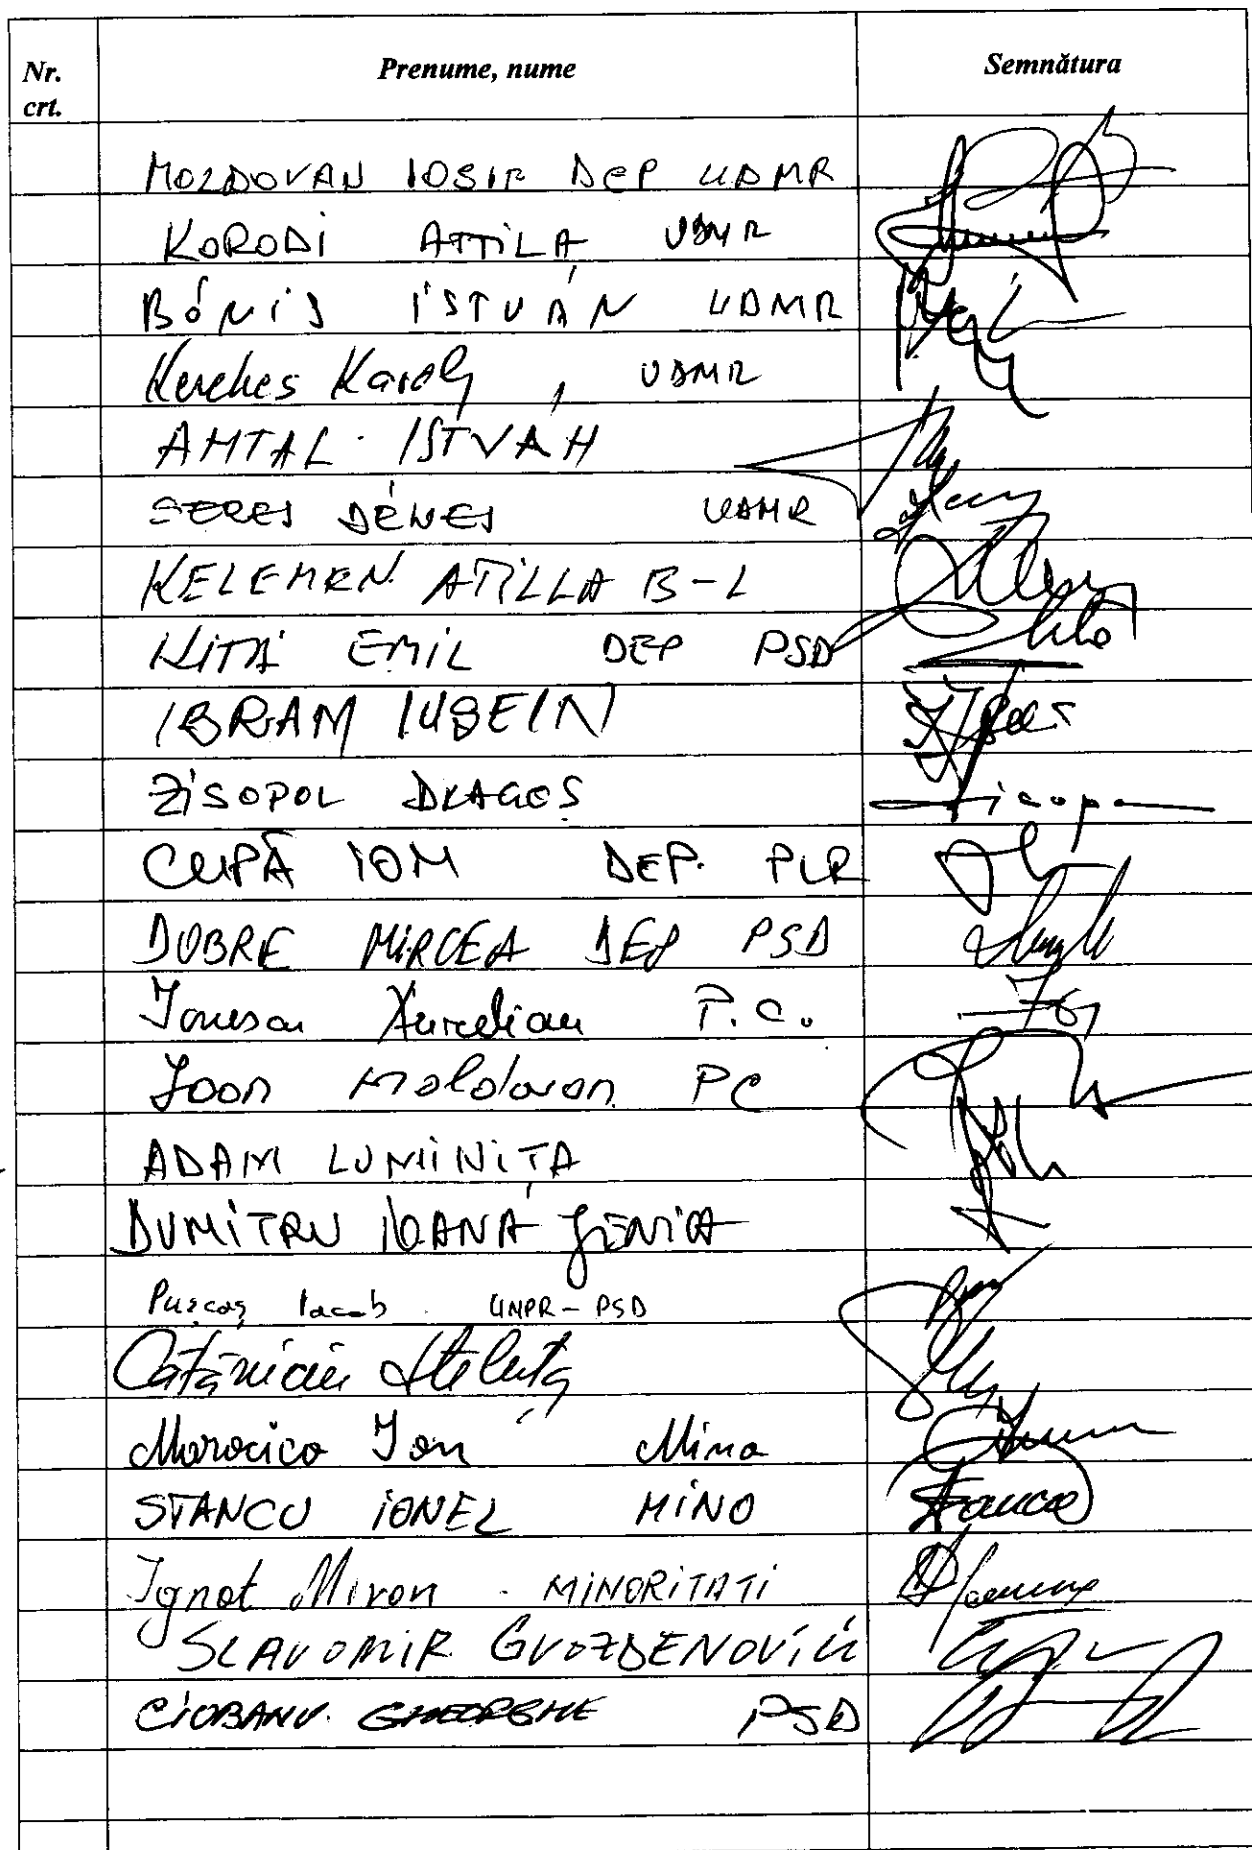 Nr. crt. Prenume, nume Semnătura
MOLDOVAN IOSIF DEP UDMR
KORODI ATTILA UDMR
BÓNIS ISTVÁN UDMR
Kerekes Karoly, UDMR
ANTAL ISTVAN
SERES DÉNES UDMR
KELEMEN ATILLA B-L
NIȚĂ EMIL DEP PSD
IBRAM IUSEIN
ZISOPOL DRAGOS
CUPĂ ION DEP. PLR
DOBRE MIRCEA DEP PSD
Ionescu Aurelian P.C.
Ioan Moldovan PC
ADAM LUMINIȚA
DUMITRU IOANA JENICA
Pușcaș Iacob UNPR-PSD
Cătăniciu Steluța
Marocico Ion Mino
STANCU IONEL MINO
Ignat Miron - MINORITATI
SLAVOMIR GVOZDENOVICI
CIOBANU GHEORGHE PSD